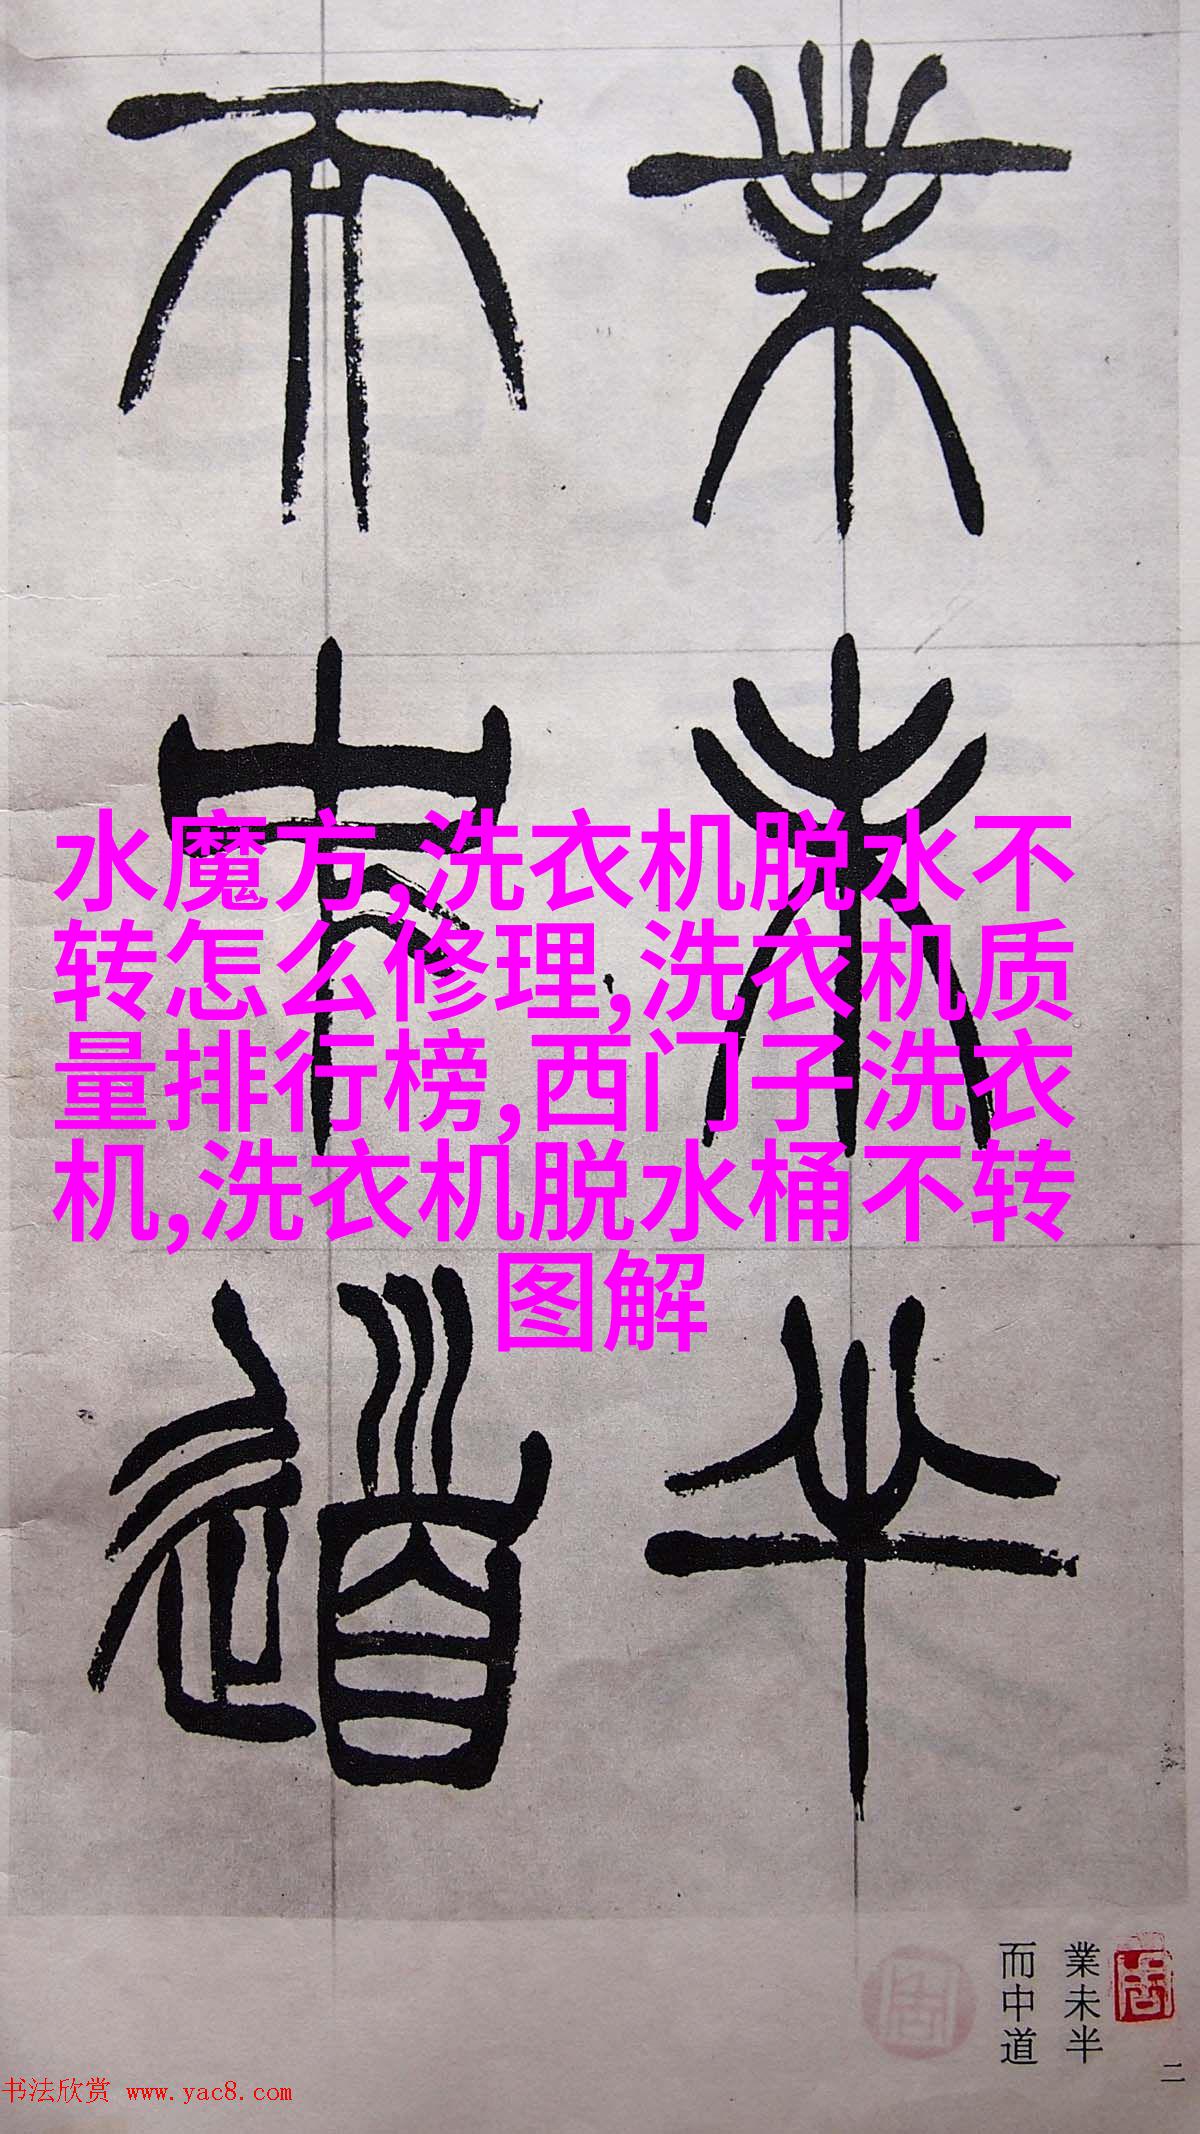 業未半
而中道
水魔方,洗衣机脱水不
转怎么修理,洗衣机质
量排行榜,西门子洗衣
机,洗衣机脱水桶不转
图解
業未半
而中道
二
书法欣赏 www.yac8.com